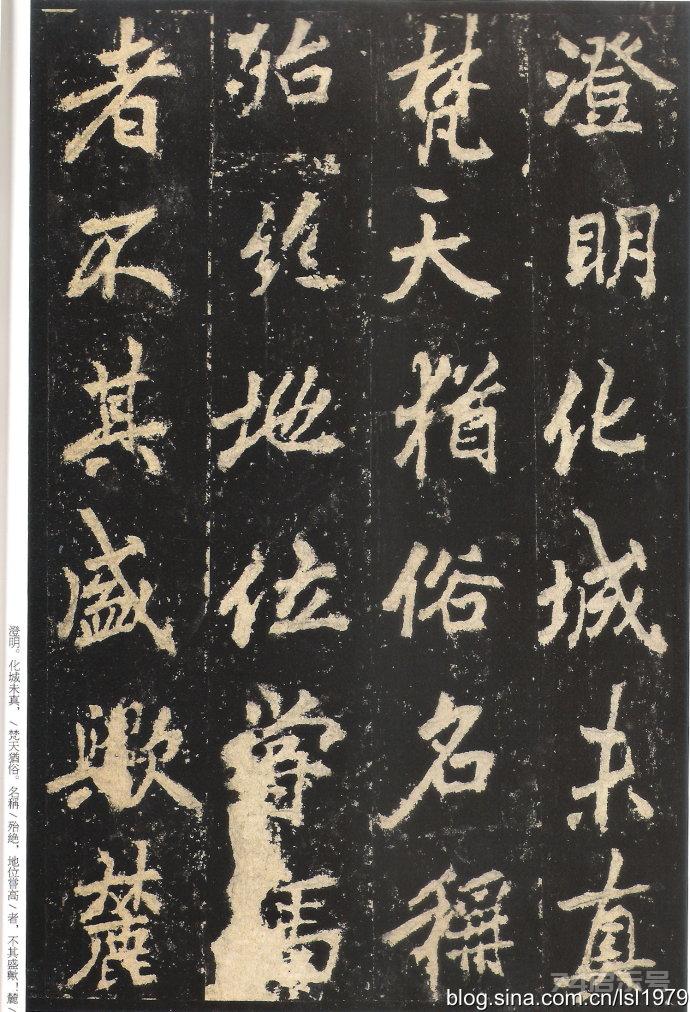 澄明化城未真
梵天猶俗名稱
殆絕地位嘗高
者不其盛歟麓
澄明。化城未真，/梵天猶俗。名稱/殆絕，地位嘗高/者，不其盛歟！麓/
blog.sina.com.cn/lsl1979